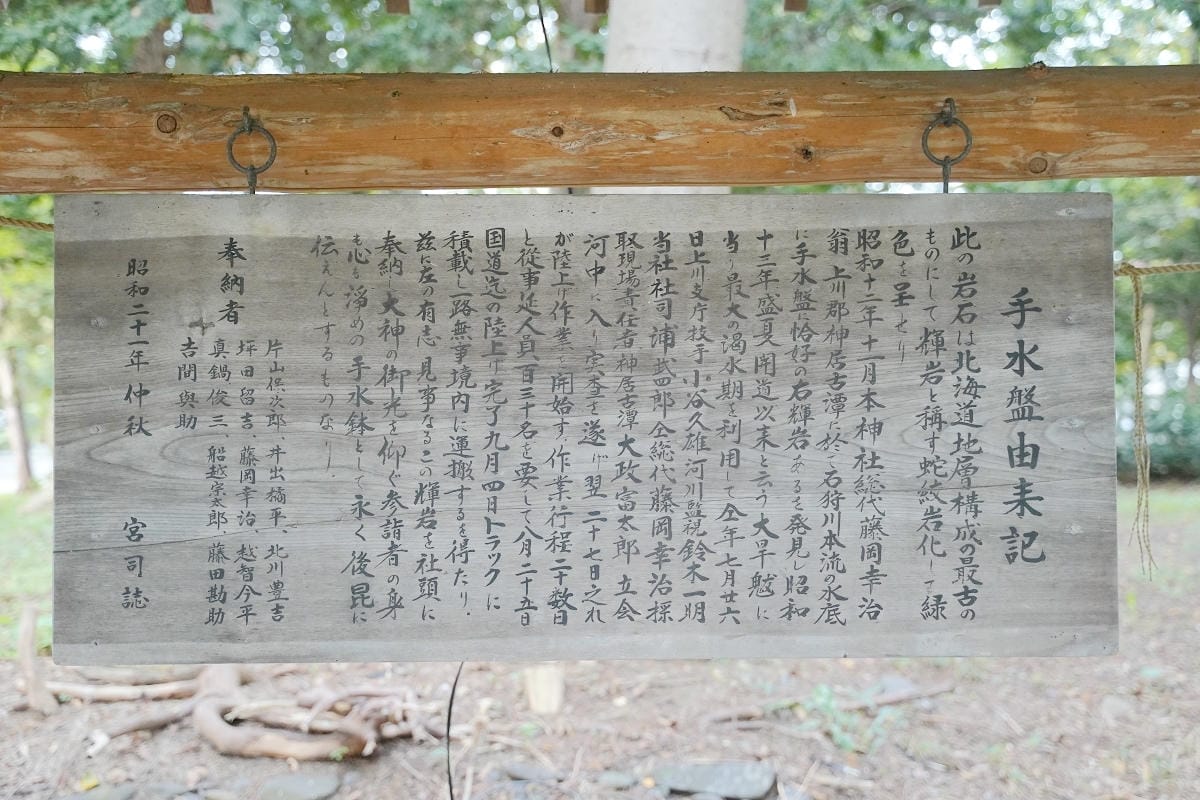 手水盤由来記
此の岩石は北海道地層構成の最古の
ものにして輝岩と稱す蛇紋岩化して緑
色を呈せり
昭和十二年十一月本神社総代藤岡幸治
翁上川郡神居古潭に於て石狩川本流の水底
に手水盤に恰好の右輝岩あるを発見し昭和
十三年盛夏開道以来と云う大旱魃に
当り最大の渇水期を利用して仝年七月廿六
日上川支庁技手小谷久雄河川監視鈴木一明
当社社司浦武四郎仝総代藤岡幸治採
取現場責任者神居古潭大政富太郎立会
河中に入り実査を遂げ翌二十七日之れ
が陸上げ作業を開始す、作業行程二十数日
と従事延人員一百三十名を要して八月二十五日
国道迄の陸上げ完了九月四日トラックに
積載し一路無事境内に運搬するを得たり、
茲に左の有志見事なるこの輝岩を社頭に
奉納し大神の御光を仰ぐ参詣者の身
も心も淨めの手水鉢として永く後昆に
伝えんとするものなり、
奉納者
片山保次郎、井出橘平、北川豊吉
坪田留吉、藤岡幸治、越智今平
真鍋俊三、船越宗太郎、藤田勘助
吉間與助
昭和二十一年仲秋 宮司誌